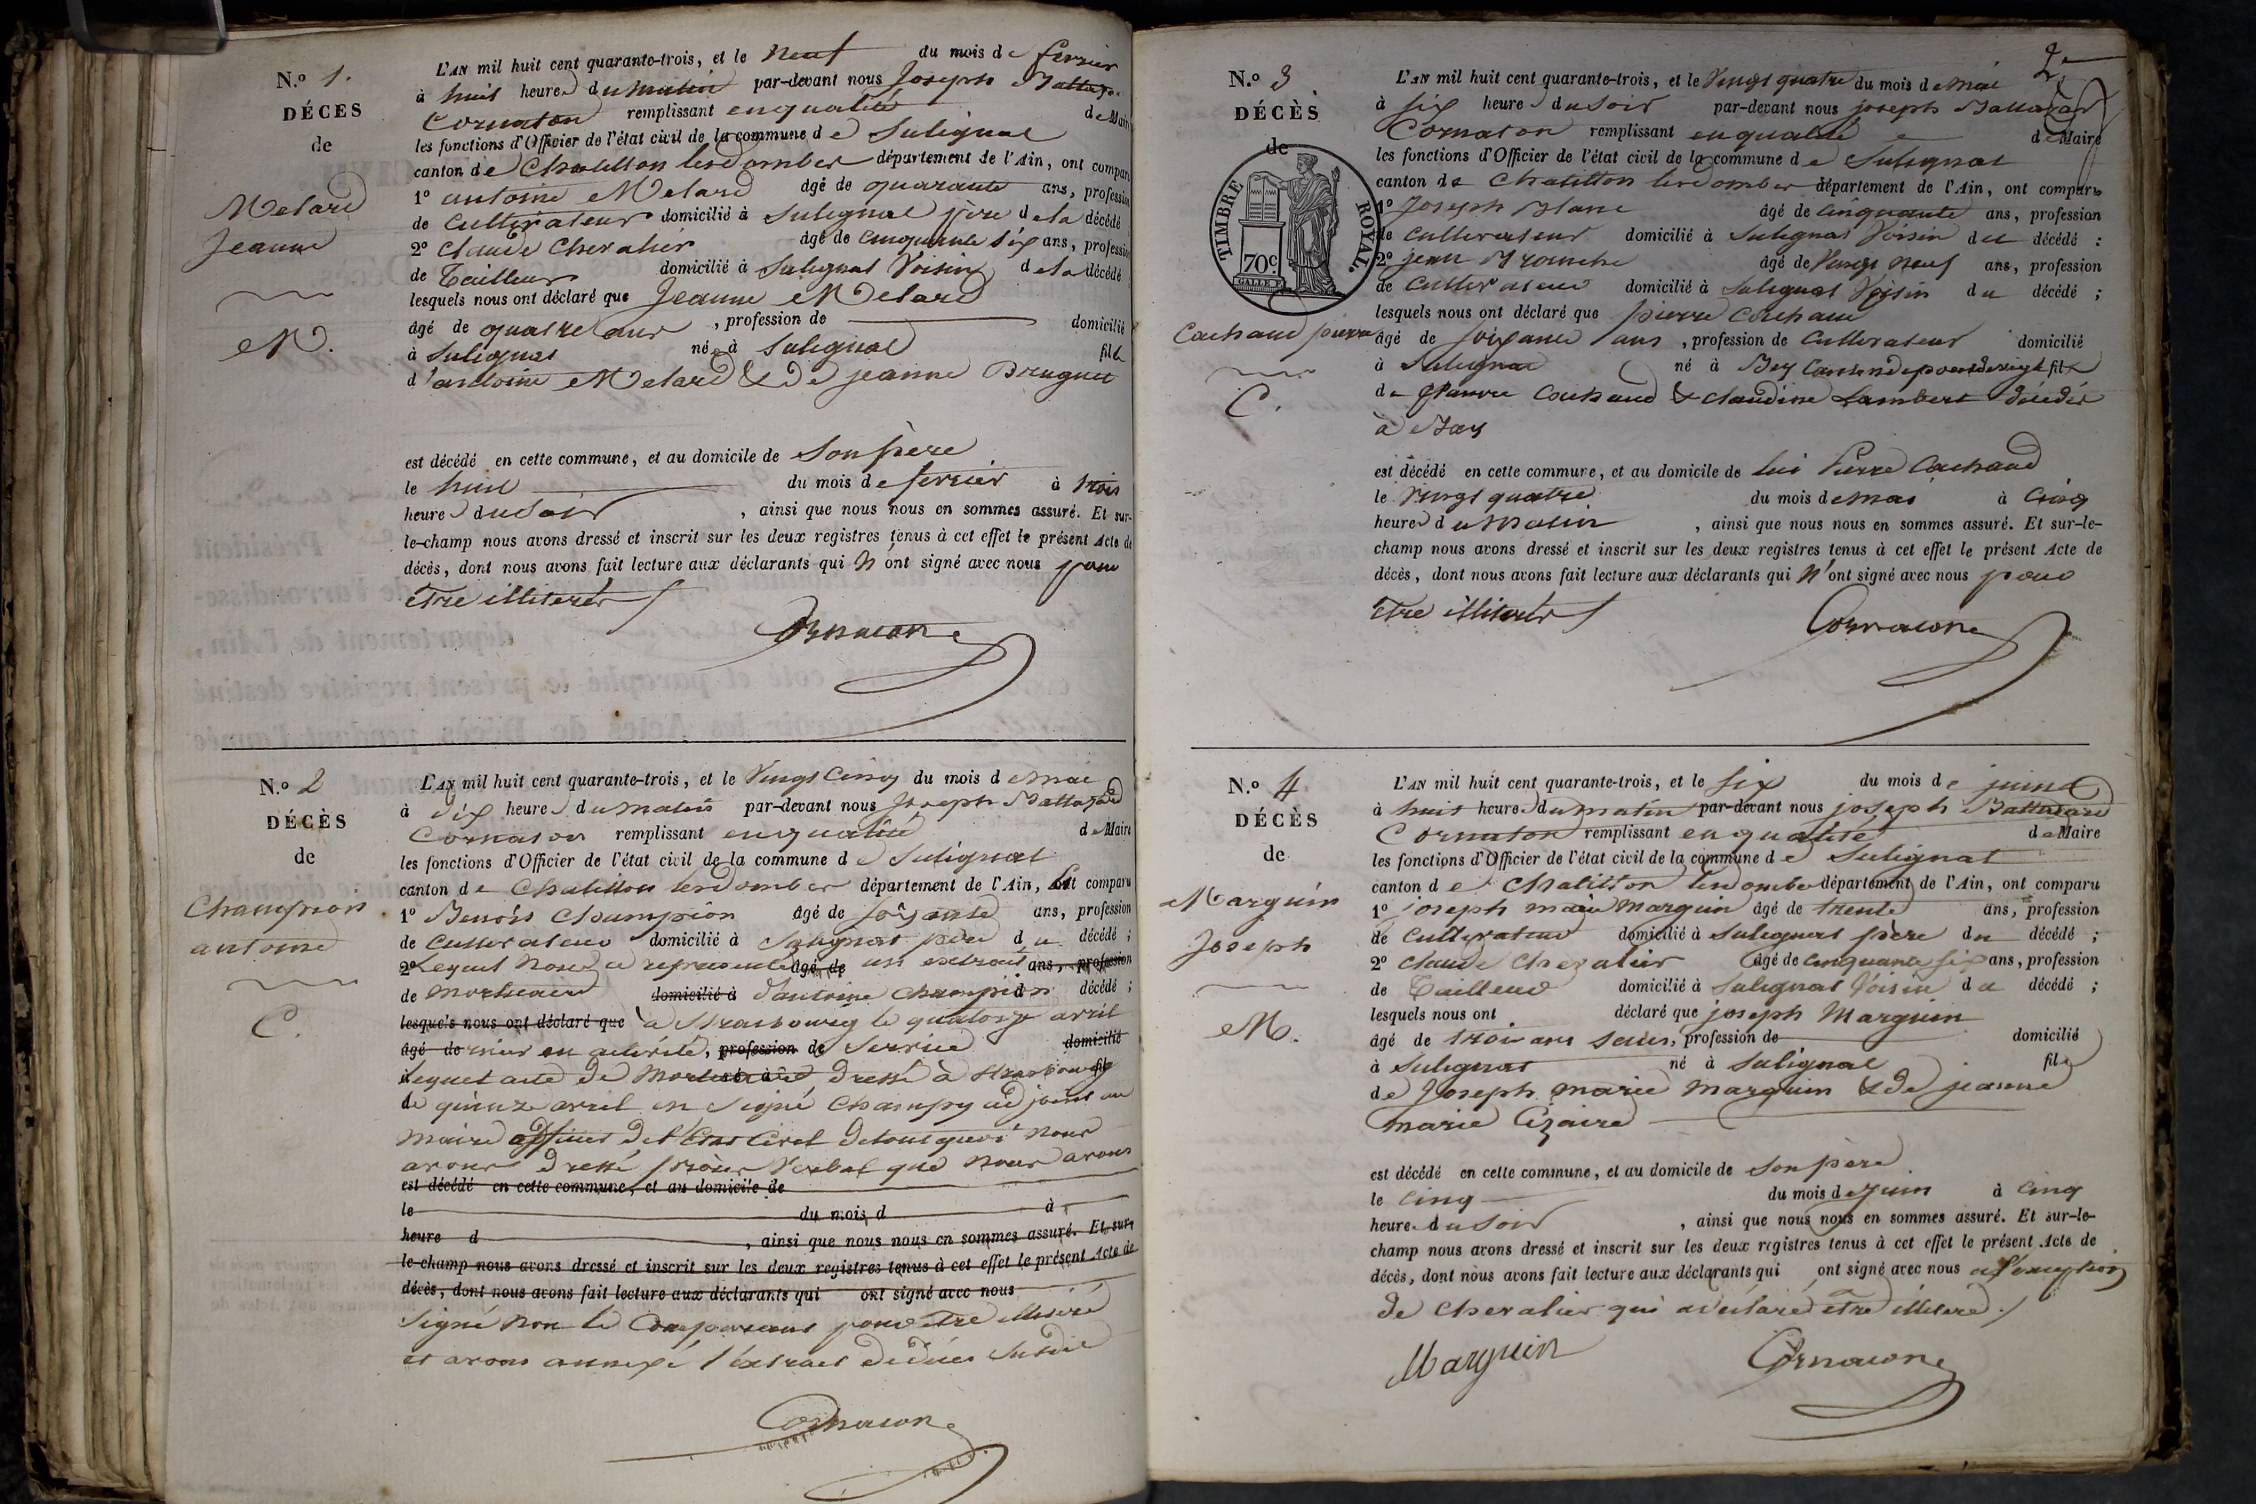 N.º 1.
DÉCES
de
Melard
Jeanne
M.
L'AN mil huit cent quarante-trois, et le neuf du mois de fevrier
à huit heures du matin par-devant nous Joseph Battaza
Cornaton remplissant en qualité de Maire
les fonctions d'Officier de l'état civil de la commune de Sulignat
canton de Chatillon les Dombes département de l'Ain, ont comparu
1º antoine Melard âgé de quarante ans, profession
de Cultivateur domicilié à Sulignat père de la décédé
2º Claude Chevalier âgé de cinquante six ans, profession
de Tailleur domicilié à Sulignat Voisin de la décédé
lesquels nous ont déclaré que Jeanne Melard
âgé de quatre ans , profession de domicilié
à Sulignat née à Sulignat fille
d'antoine Melard & De jeanne
est décédé en cette commune, et au domicile de son père
le huit du mois de fevrier à trois
heures du Soir , ainsi que nous nous en sommes assuré. Et sur-
le-champ nous avons dressé et inscrit sur les deux registres tenus à cet effet le présent Acte de
décès, dont nous avons fait lecture aux déclarants qui n'ont signé avec nous pour
être illiterés
Cornaton
N.º 2
DÉCÈS
de
Champion
antoine
C.
L'AN mil huit cent quarante-trois, et le Vingt Cinq du mois de mai
à dix heures du matin par-devant nous Joseph Battazard
Cornaton remplissant en qualité de Maire
les fonctions d'Officier de l'état civil de la commune de Sulignat
canton de Chatillon les Dombes département de l'Ain, est comparu
1º Benoit Champion âgé de soixante ans, profession
de Cultivateur domicilié à Sulignat père du décédé ;
2º Lequel nous a representé âgé de un extrait ans, profession
de mortuaire domicilié à d'antoine Champion d décédé ;
lesquels nous ont déclaré que à Strasbourg le quatorze avril
âgé de en activité, profession de de Service domicilié
Lequel acte de Mortuaire Dressé à Strasbourg
le quinze avril en Signé Champy adjoint au
Maire officier de l'Etat Civil de tout quoi nous
avons Dressé procès Verbal que nous avons
est décédé en cette commune, et au domicile de
le du mois d à
heure d , ainsi que nous nous en sommes assuré. Et sur-
le-champ nous avons dressé et inscrit sur les deux registres tenus à cet effet le présent Acte de
décès, dont nous avons fait lecture aux déclarants qui ont signé avec nous
signé non le Comparant pour être illiteré
et avons annexé l'extrait de décès susdit
Cornaton
2e
N.º 3
DÉCÈS
de
TIMBRE ROYAL.
70c.
Cochaud pierre
C.
L'AN mil huit cent quarante-trois, et le Vingt quatre du mois de mai
à six heure du soir par-devant nous joseph Battazard
Cornaton remplissant en qualité de Maire
les fonctions d'Officier de l'état civil de la commune de Sulignat
canton de Chatillon les Dombes département de l'Ain, ont comparu
1º Joseph Blanc âgé de Cinquante ans, profession
de Cultivateur domicilié à Sulignat Voisin du décédé :
2º jean âgé de Vingt neuf ans, profession
de Cultivateur domicilié à Sulignat Voisin du décédé ;
lesquels nous ont déclaré que pierre Cochaud
âgé de soixante ans , profession de Cultivateur domicilié
à Sulignat né à Bey Canton de pont de veyle fils
de Cochaud & claudine Lambert décédés
à Bey
est décédé en cette commune, et au domicile de lui Pierre Cochaud
le Vingt quatre du mois de mai à Cinq
heures du Matin , ainsi que nous nous en sommes assuré. Et sur-le-
champ nous avons dressé et inscrit sur les deux registres tenus à cet effet le présent Acte de
décès, dont nous avons fait lecture aux déclarants qui n'ont signé avec nous pour
être illiterés
Cornaton
N.º 4
DÉCÈS
de
Marguin
Joseph
M.
L'AN mil huit cent quarante-trois, et le Six du mois de juin
à huit heures du matin par-devant nous joseph Battazard
Cornaton remplissant en qualité de Maire
les fonctions d'Officier de l'état civil de la commune de Sulignat
canton de Chatillon les Dombes département de l'Ain, ont comparu
1º joseph marie Marguin âgé de trente ans, profession
de Cultivateur domicilié à Sulignat père du décédé ;
2º Claude Chevalier âgé de cinquante six ans, profession
de Tailleur domicilié à Sulignat Voisin du décédé ;
lesquels nous ont déclaré que joseph Marguin
âgé de trois ans , profession de domicilié
à Sulignat né à Sulignat fils
de Joseph marie Marguin & de jeanne
marie Cizaire
est décédé en cette commune, et au domicile de son père
le cinq du mois de Juin à cinq
heure du soir , ainsi que nous nous en sommes assuré. Et sur-le-
champ nous avons dressé et inscrit sur les deux registres tenus à cet effet le présent Acte de
décès, dont nous avons fait lecture aux déclarants qui ont signé avec nous a l'exception
de Chevalier qui a déclaré être illiteré
Marguin Cornaton